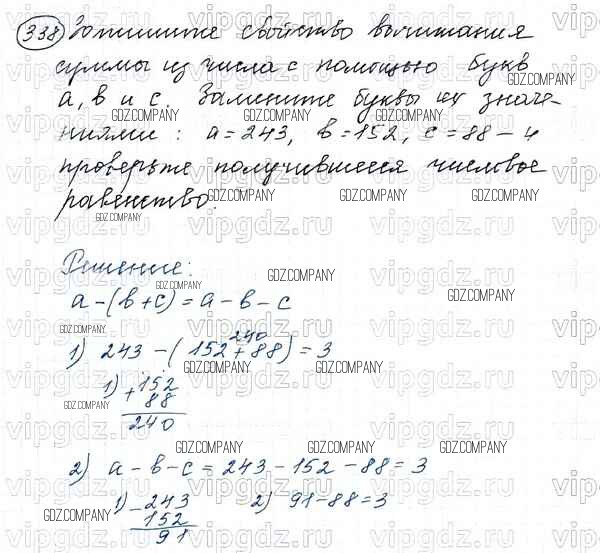 338 Запишите свойство вычитания
суммы из числа с помощью букв
a, b и c. Замените буквы их значе-
ниями: a=243, b=152, c=88 – и
проверьте получившееся числовое
равенство.
Решение:
a-(b+c)=a-b-c
240
1) 243-(152+88)=3
1) +152
88
240
2) a-b-c=243-152-88=3
1) -243 2) 91-88=3
152
91
GDZ.COMPANY
vipgdz.ru